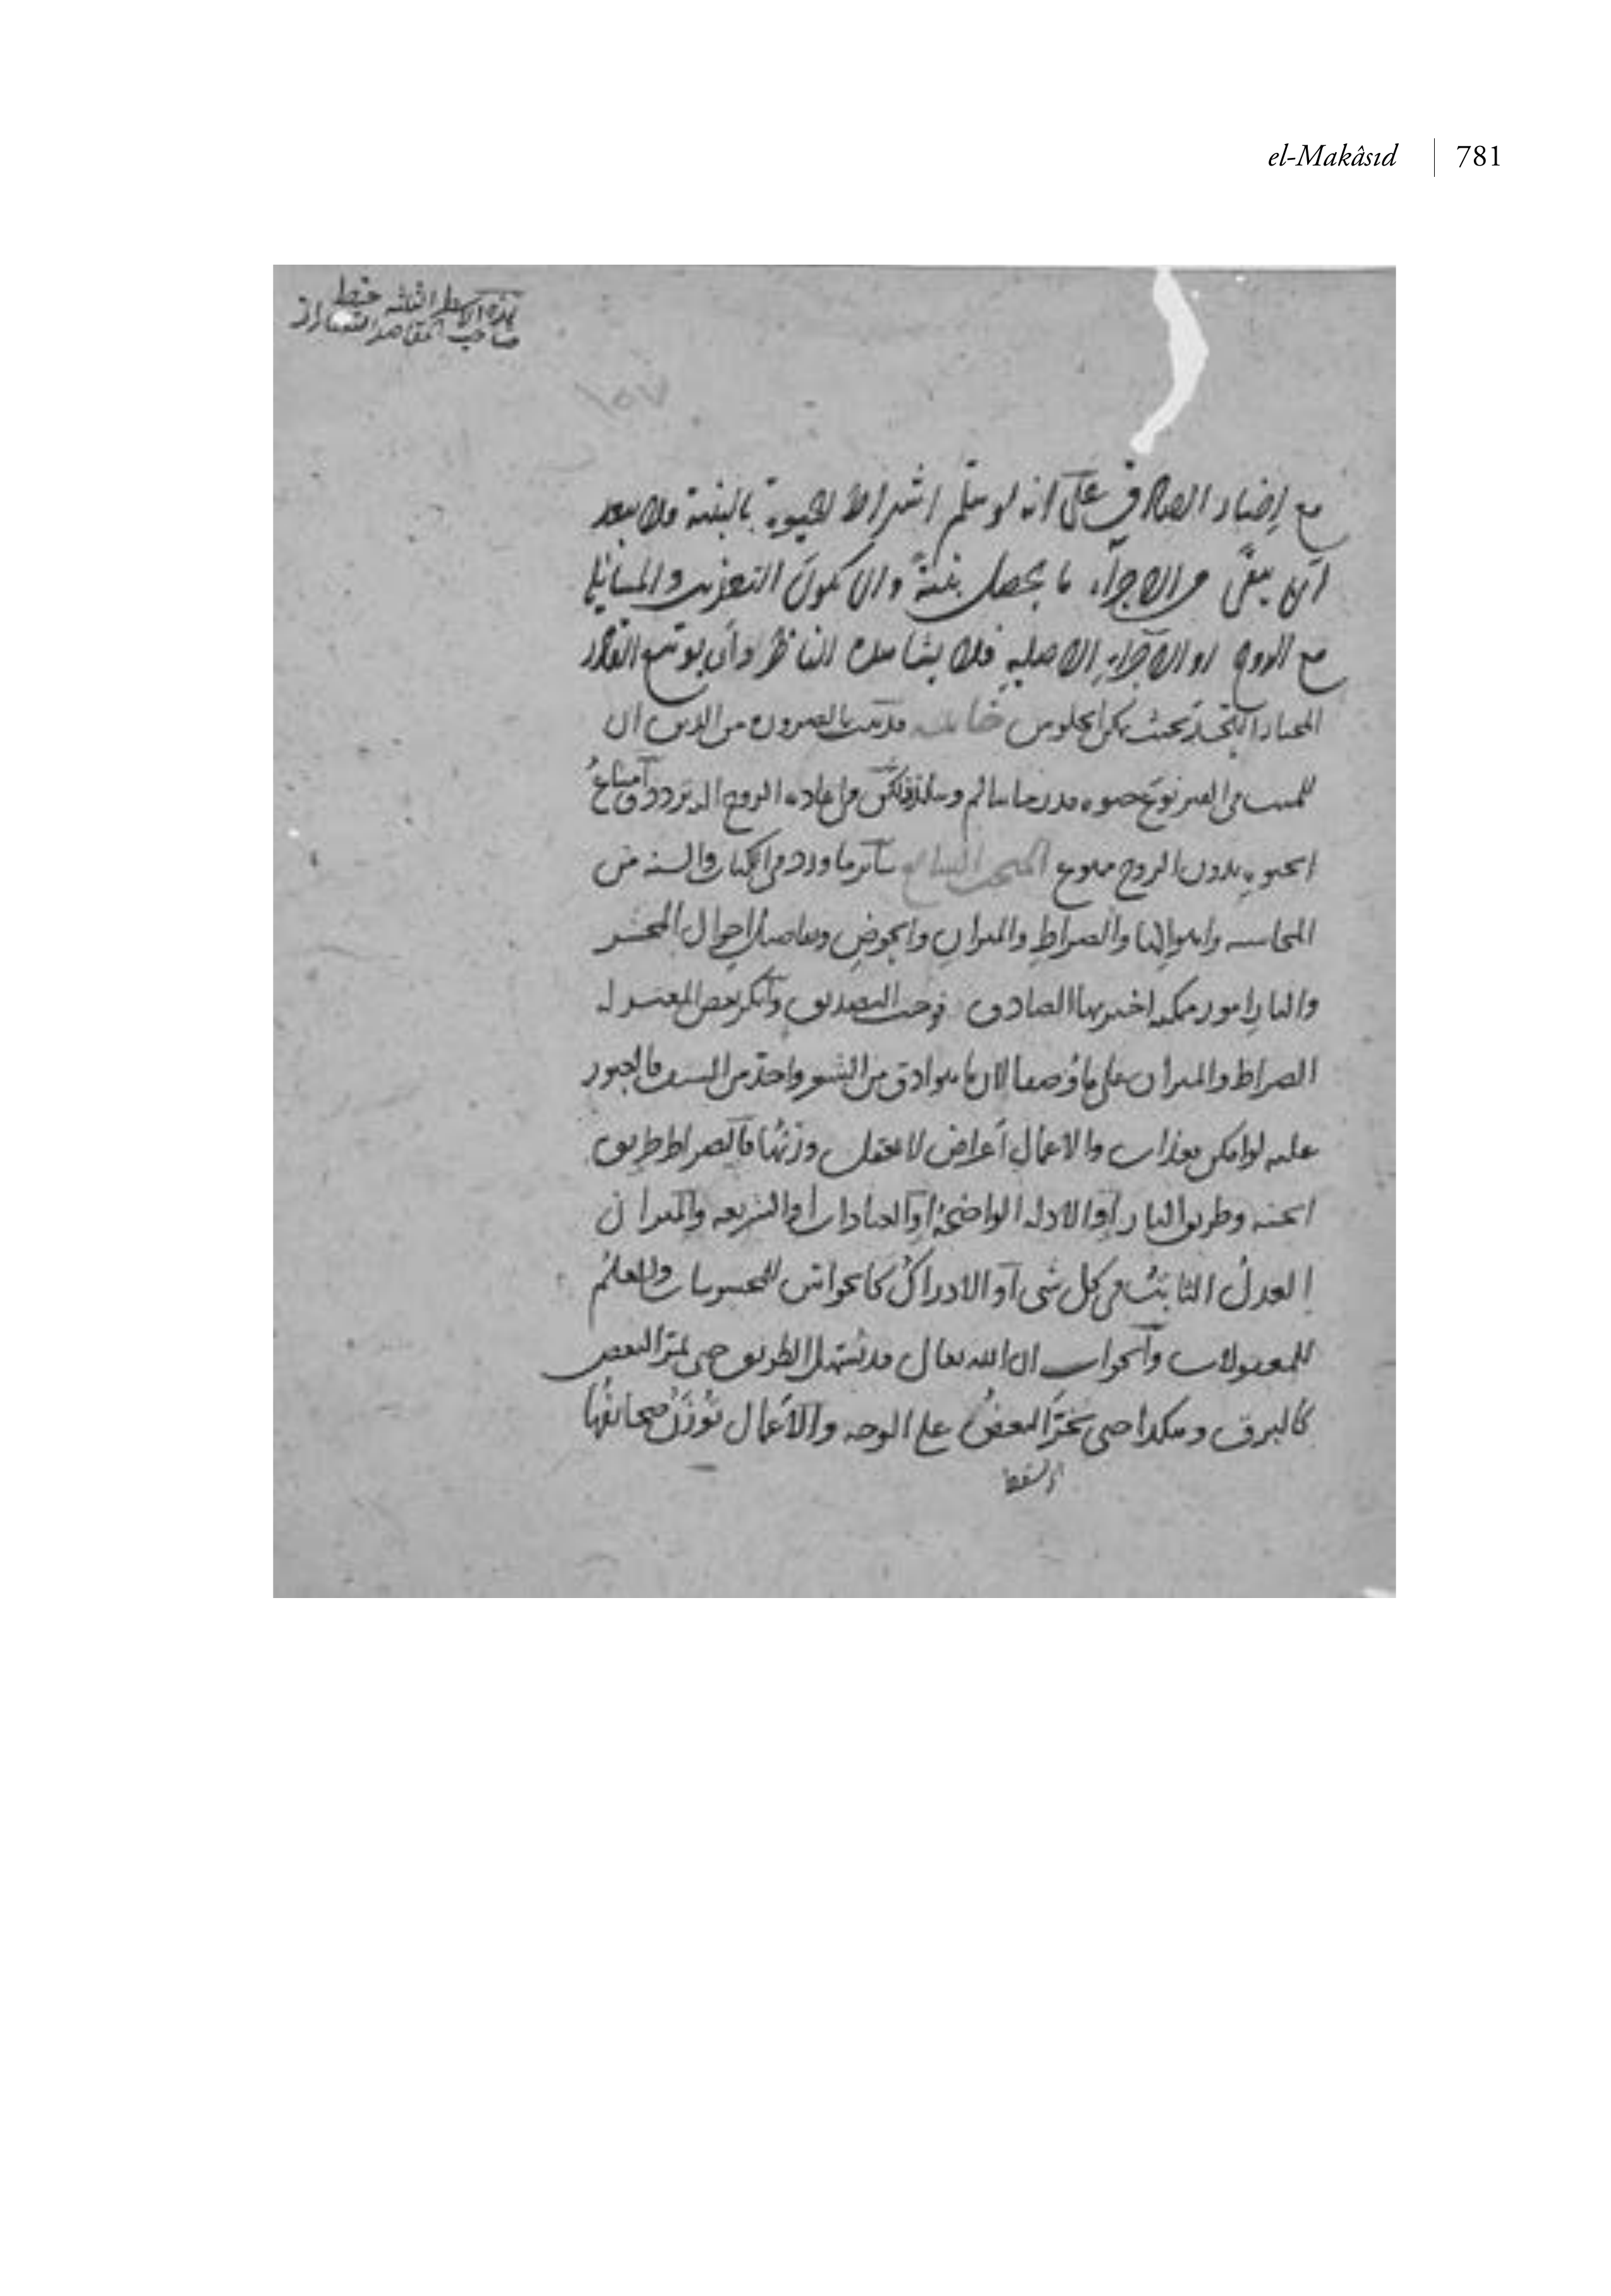 el-Makâsıd | 781
هذه الاسطر الثلثه خط
صاحب المقاصد التفتازانى
١٥٧
مع إخبار الصادق على انه لو سلم اشتراط الحيوة بالبنية فلا يبعد
ان يبقى من الاجزاء ما يصلح بنية وان يكون التعذيب والمسائلة
مع الروح او الاجزاء الاصلية فلا يشاهده الناظر وان يوسع القادر
المختار اللحد بحيث يمكن الجلوس خاتمة قد ثبت بالضرورة من الدين ان
للميت فى القبر نوع حيوة قدر ما يتألم ويتلذذ لكن فى اعادة الروح اليه تردد وامتناع
الحيوة بدون الروح ممنوع المبحث السابع سائر ما ورد فى الكتاب والسنة من
المحاسبة واهوالها والصراط والميزان والحوض وتفاصيل احوال المحشر
والنار امور ممكنة اخبر بها الصادق فوجب التصديق وانكر بعض المعتزلة
الصراط والميزان على ما وصفا لان ما هو ادق من الشعر واحد من السيف فالعبور
عليه لو امكن فعذاب والاعمال أعراض لا يعقل وزنها فالصراط طريق
الجنة وطريق النار او الادلة الواضحة او العبادات او الشريعة والميزان
العدل الثابت فى كل شى او الادراك كالحواس للمحسوسات والعلم
للمعقولات والجواب ان الله تعالى قد يسهل الطريق حتى يمر البعض
كالبرق وهكذا حتى يخر البعض على الوجه والاعمال توزن صحائفها